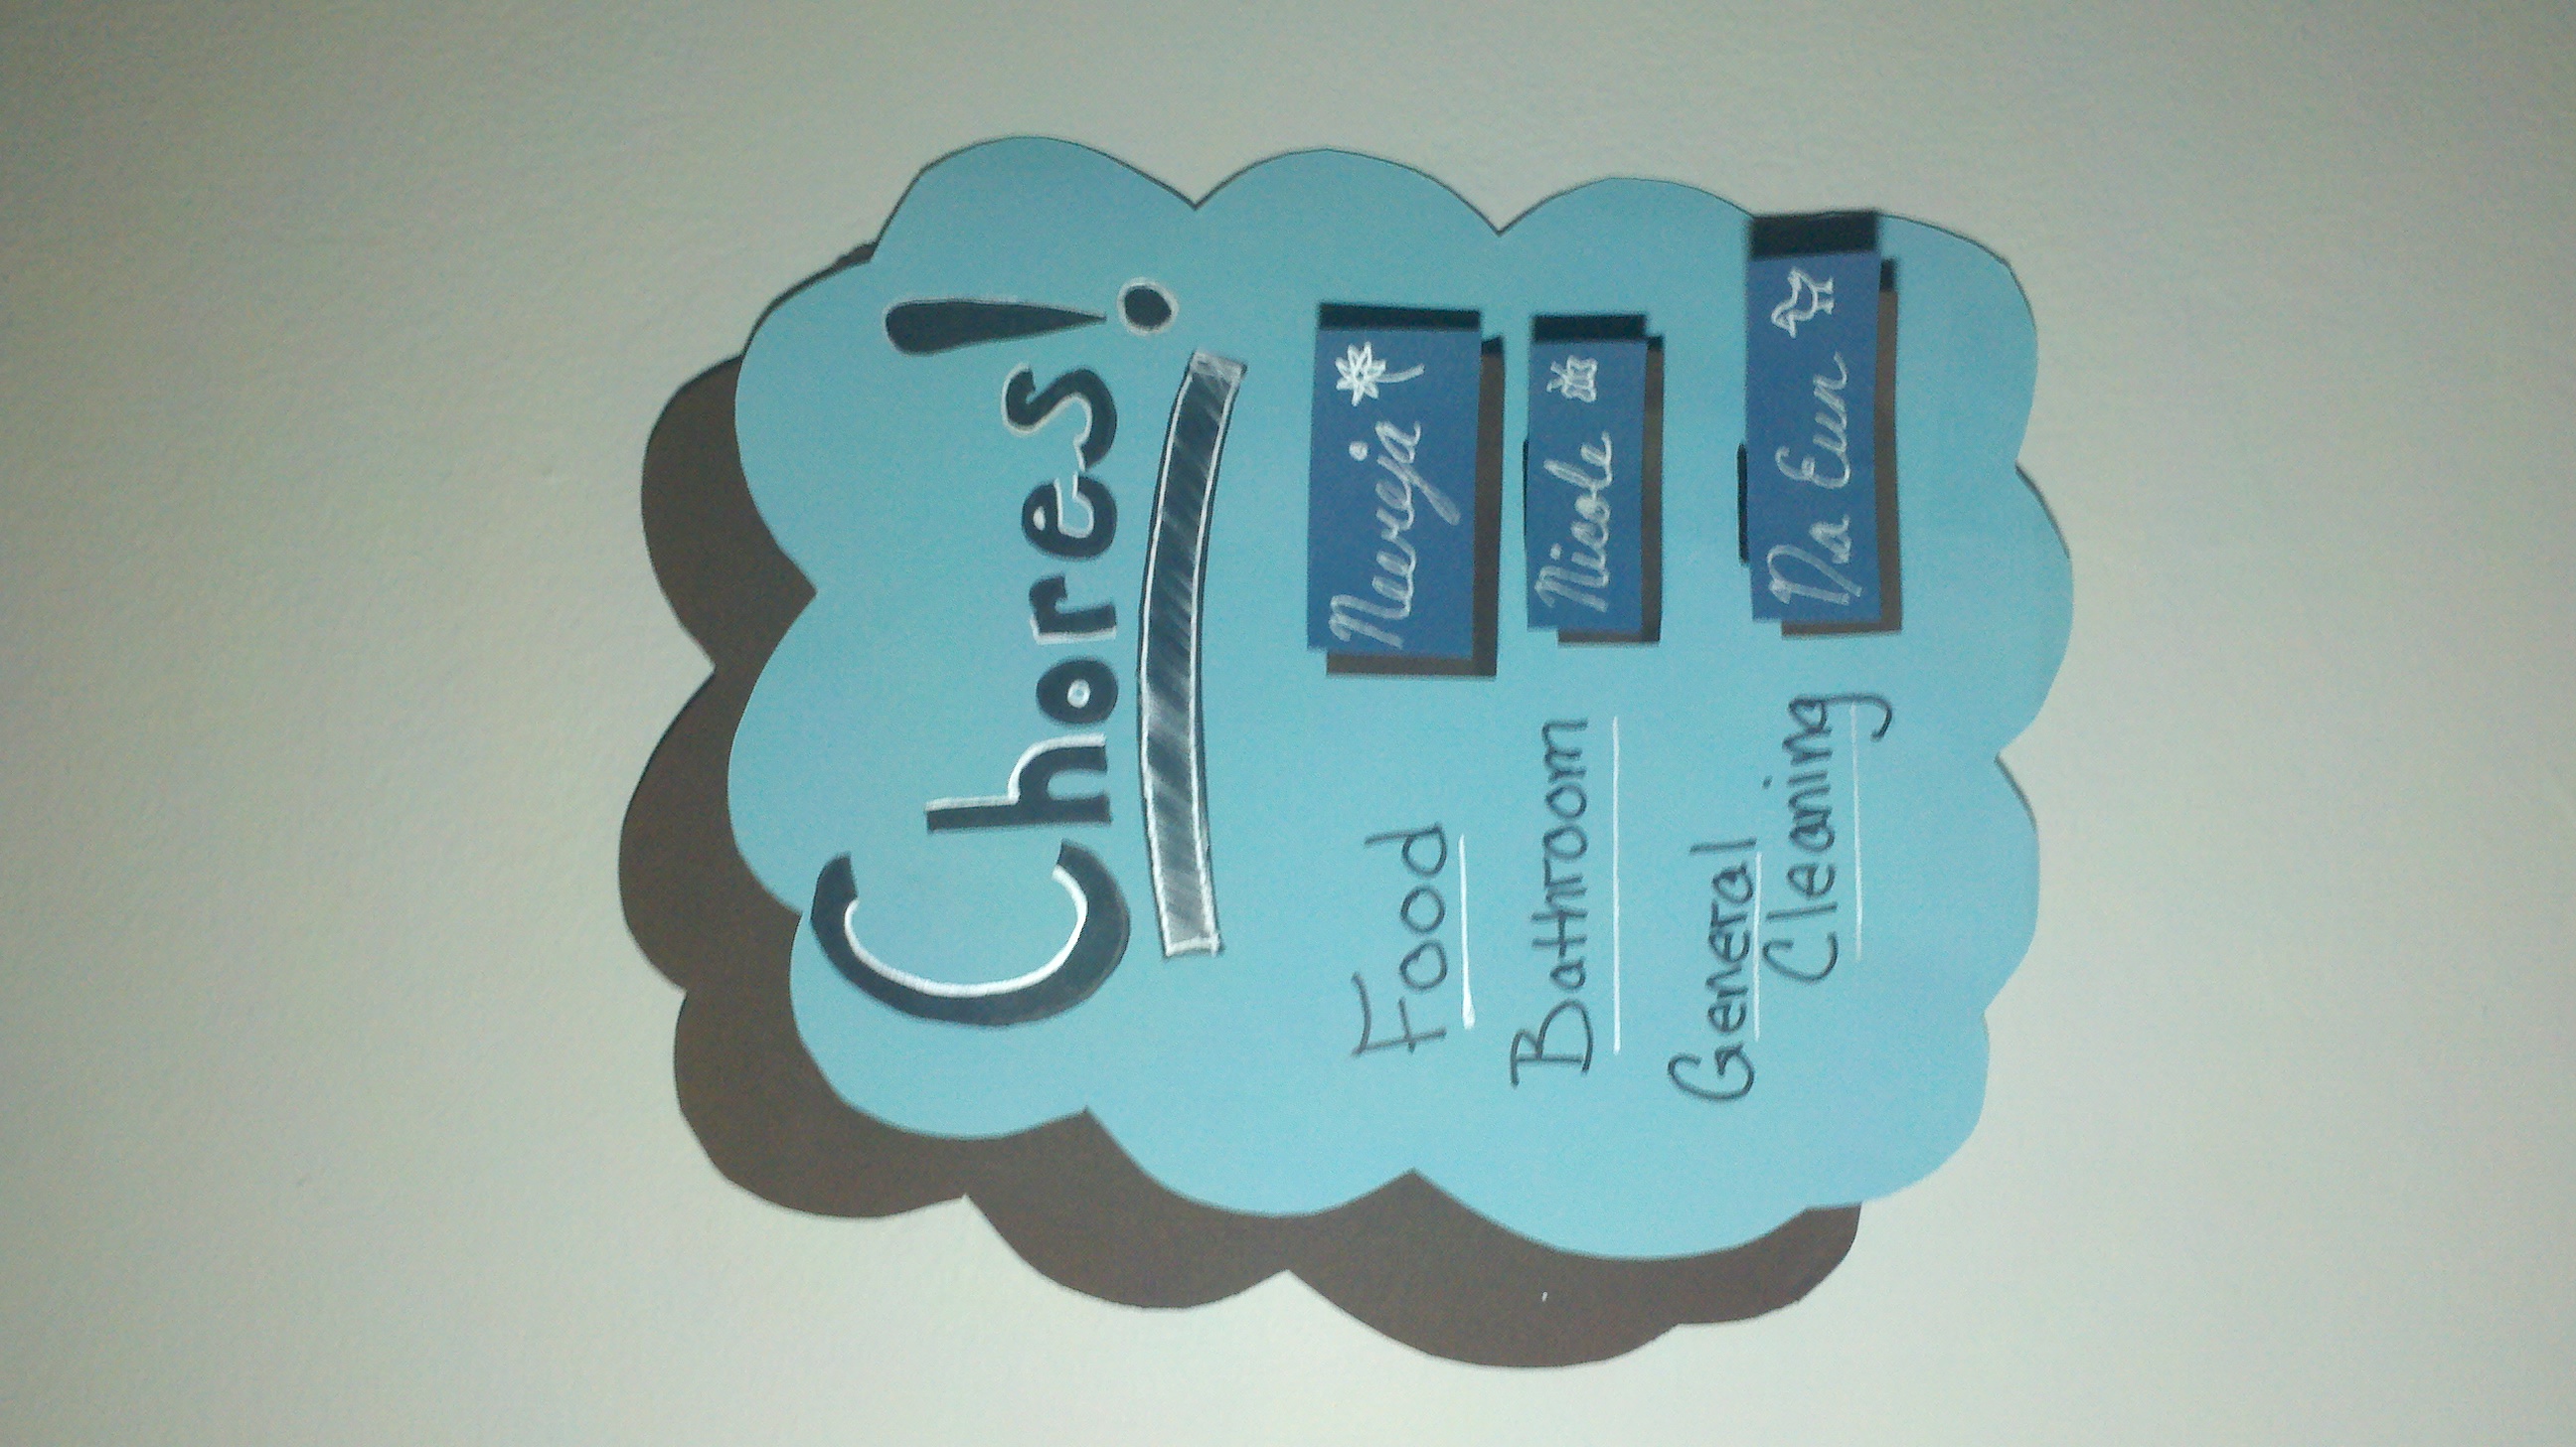 Chores!
Food Neereja
Bathroom Nicole
General
Cleaning Da Eun